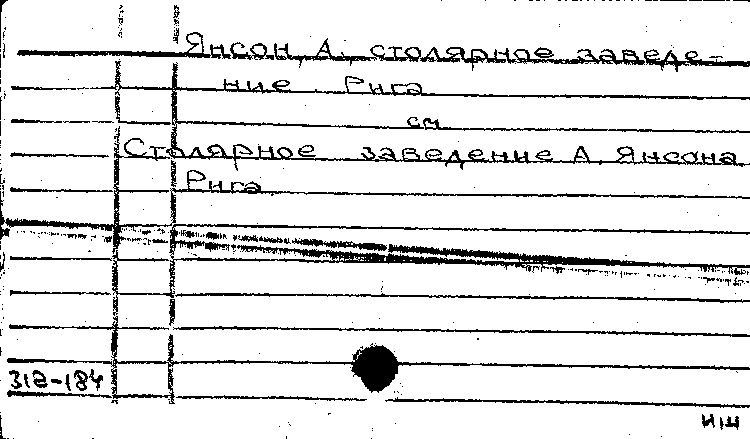 Янсон, А. столярное заведе-
ние. Рига
см
Столярное заведение А. Янсона
Рига
312-184
ИШ